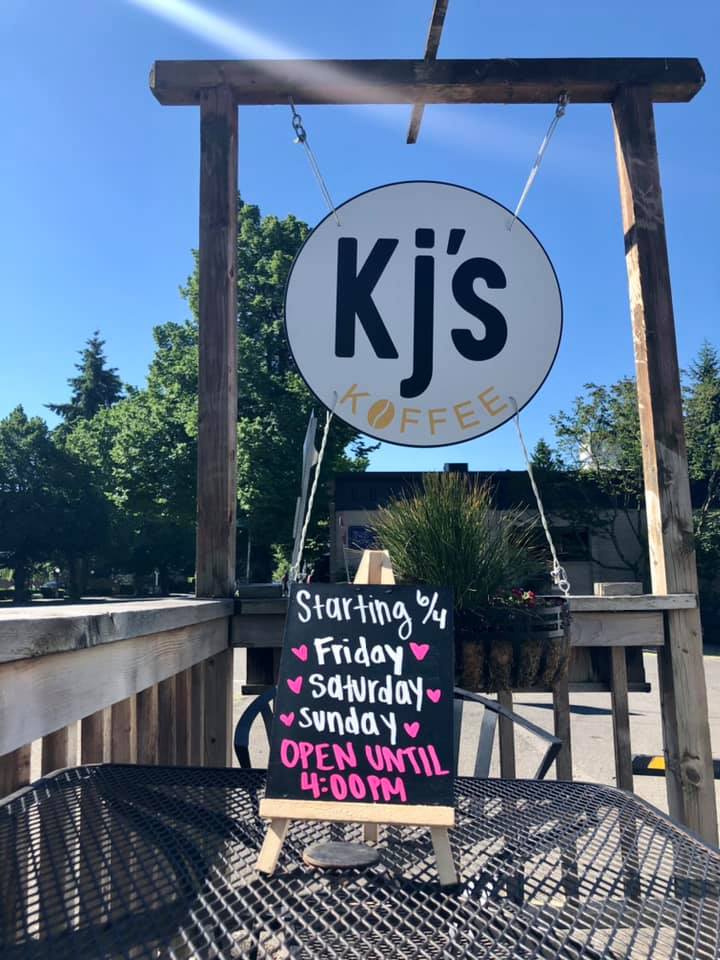 Kj's
KOFFEE
Starting 6/4
Friday
Saturday
Sunday
OPEN UNTIL
4:00PM